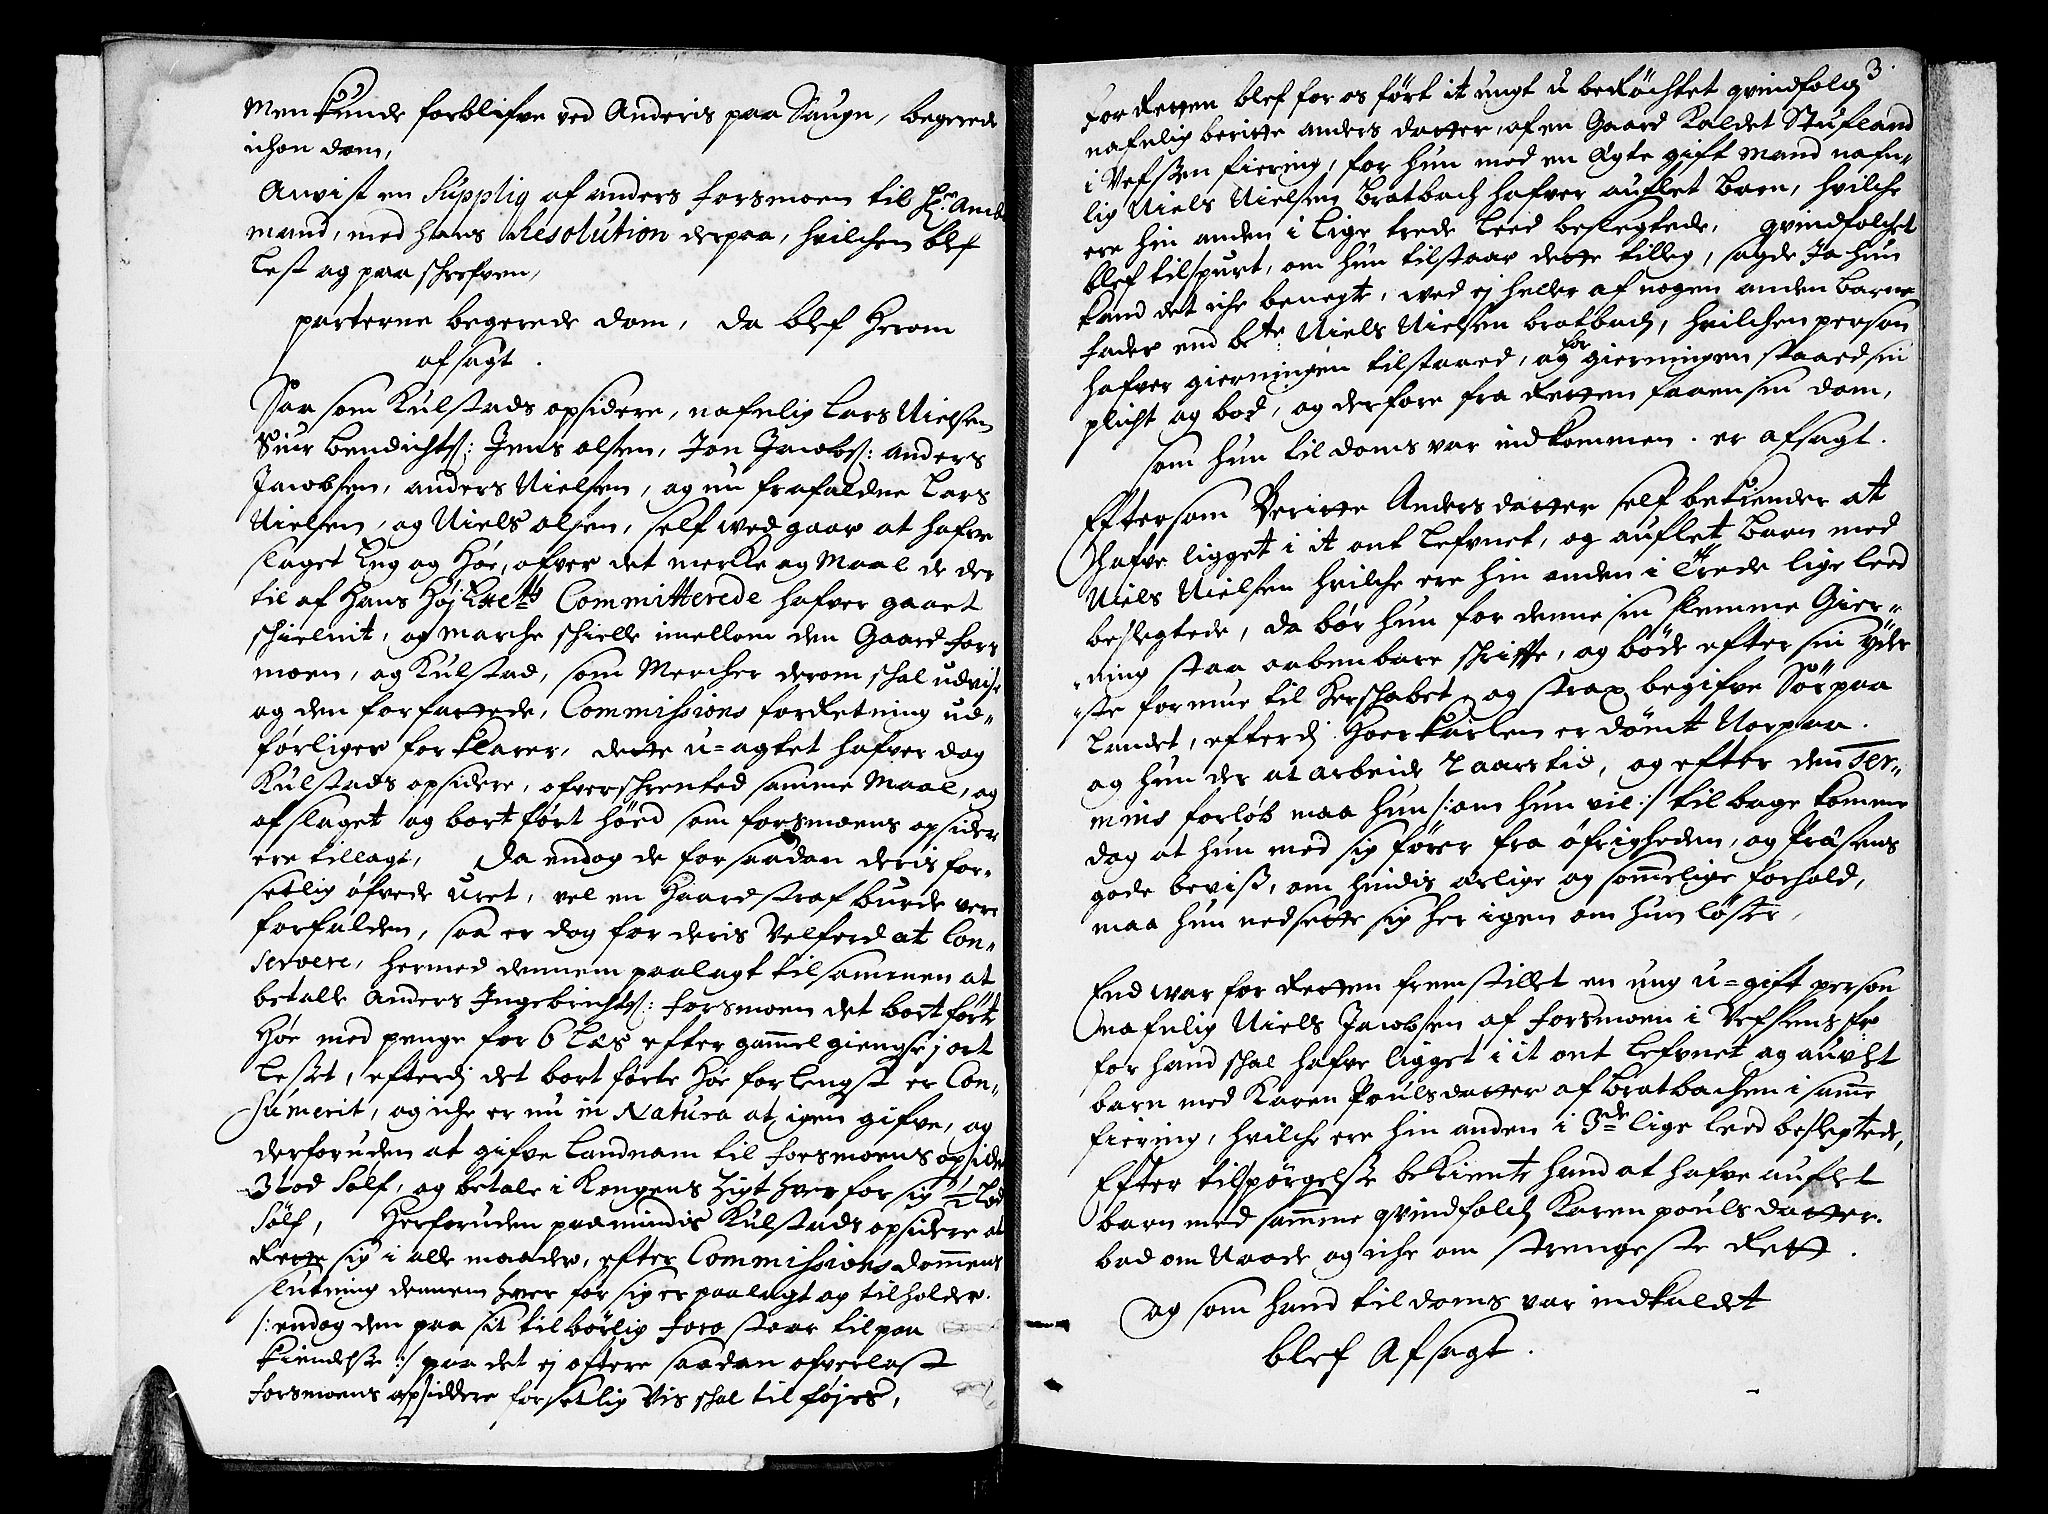 Men kunde forblifve ved Anderis paa Saugn, begerede
ichon dom,
Anvist en Supplig af anders Forsmoen til Hr. Ambt
mand, med hans Resolution derpaa, hvilchen blef
lest og paa schrefven,
parterne begerede dom, da blef Herom
afsagt.
Saa som Kulstads opsidere, nafnlig Lars Nielsen
Siur Bendichts: Jens olsen, Jon Jacobs: anders
Jacobsen, anders Nielsen, og nu frafaldne Lars
Nielsen, og Niels olsen, self wedgaar at hafve
slaget Eng og Høe, ofver det merke og Maal de der
til af Hans Høj Committerede hafver gaaet
schielnit, og marche schielle imellom den Gaard Fors
moen, og Kulstad, som Mercher derom schal udvise
og den forfattede, Commissions forRetning ud-
førliger forklarer, dette u=agtet hafver dog
Kulstads opsidere, ofverschrented samme Maal, og
afslaget og bort ført høed som forsmoens opsider
ere tillagt, Da endog de for saadan deris for-
setlig øfvede Uret, vel en Haard straf burde vere
forfalden, saa er dog for deris Velferd at Con-
servere, hermed dennem paalagt tilsammen at
betalle Anders Ingebrichts: Forsmoen det bortførte
Høe med penge for 6 Læs efter gammel giengse j ort
Lesset, efterdj det bort førte Høe forlengst er Con-
sumerit, og iche er nu in Natura at igen gifve, og
derforuden at gifve Landnam til Forsmoens opsider
3 Lod Sølf, og betale i Kongens Sigt hver for sig ½ Lod
Sølf, Herforuden paamindis Kulstads opsidere at
Rette sig i alle maader, efter Commissions dommens
slutning dennem hver for sig er paalagt og tilholder.
/: endog den paa sit tilbørlig Foro staar til paa
kiendelse :/ paa det ej oftere saadan ofverlast
Forsmoens opsiddere forsetlig Vis schal til føjes,
3.
For Retten blef for os ført it ungt u berøchtet qvindfolch
nafnlig beritte anders datter, af en Gaard Kaldet Stufland
i Vefssen fiering, for hun med en Ægte gift mand nafn-
lig Niels Nielsen Bratbach hafver auflet Barn, hvilche
ere hin anden i Lige trede Leed beslegtede, qvindfolchet
blef tilspurt, om hun tilstaar dette tilleg, sagde Ja hun
kand det iche benegte, wed ej heller af nogen anden Barne
Fader end bete: Niels Nielsen bratbach, hvilchen person
hafver gierningen tilstaaed, og for gierningen staaed sin
plicht og bod, og derfore fra Retten faaen sin dom,
som hun til doms var indkommen. er afsagt.
Eftersom Beritte Anders datter self bekiender at
hafve ligget i it ont Lefvnet, og auflet Barn med
Niels Nielsen hvilche ere hin anden i Trede lige leed
beslegtede, da bør hun for denne sin slemme Gier-
ning staa aabenbare schrifte, og bøde efter sin yder
ste formue til Herschabet og strax begifve Sør paa
Landet, efterdj Hoerkarlen er dømt Norpaa.
og hun der at arbeide 2 aars tid, og efter den Ter-
mins forløb maa hun /: om hun vil :/ til bage komme
dog at hun med sig fører fra øfrigheden, og Præsens
gode beviss, om hindis ærlige og sommelige forhold,
maa hun nedsette sig her igen om hun løster,
End war for Retten fremstillet en ung u=gift person
nafnlig Niels Jacobsen af Forsmoen i Vefsens fr:
for hand schal hafve ligget i it ont Lefvnet og aufllt
barn med Karen Pouls datter af Bratbachen i samme
fiering, hvilche ere hin anden i 3de lige leed beslegtede,
Efter tilspørgelse bekiente hand at hafve auflet
barn med samme qvindfolch Karen pouls datter.
bad om Naade og iche om strengeste Rett.
og som hand til doms var indkaldet
blef Afsagt.